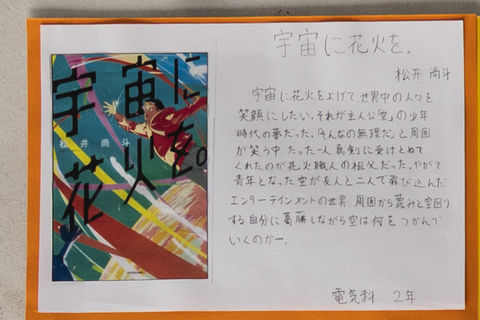 宇宙に
花火を。
松井 尚斗
宇宙に花火を。
松井 尚斗
宇宙に花火を上げて、世界中の人々を
笑顔にしたい。それが主人公「空」の少年
時代の夢だった。「そんなの無理だ」と周囲
が笑う中、たった一人真剣に受けとめて
くれたのが花火職人の祖父だった。やがて
青年となった空が友人と二人で飛び込んだ
エンターテインメントの世界。周囲から蔑みと空回り
する自分に葛藤しながら空は何をつかんで
いくのかー。
電気科 2年